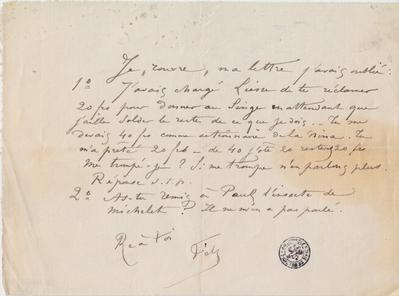 Je, rouvre, ma lettre j'avais oublié:
1º J'avais chargé Lièvre de te réclamer
20 fs pour donner au Singe en attendant que
j'aille solder le reste de ce que je dois.. Tu me
devais 40 fs comme actionnaire de la Nina. Tu
m'a prêté 20 fs - de 40 j'ôte 20 reste 20 fs
me trompe-je? Si me trompe n'en parlons plus.
Réponse s.t.p.
2º As-tu remis à Paul l'insecte de
Michelet? Il ne m'en a pas parlé.
à toi